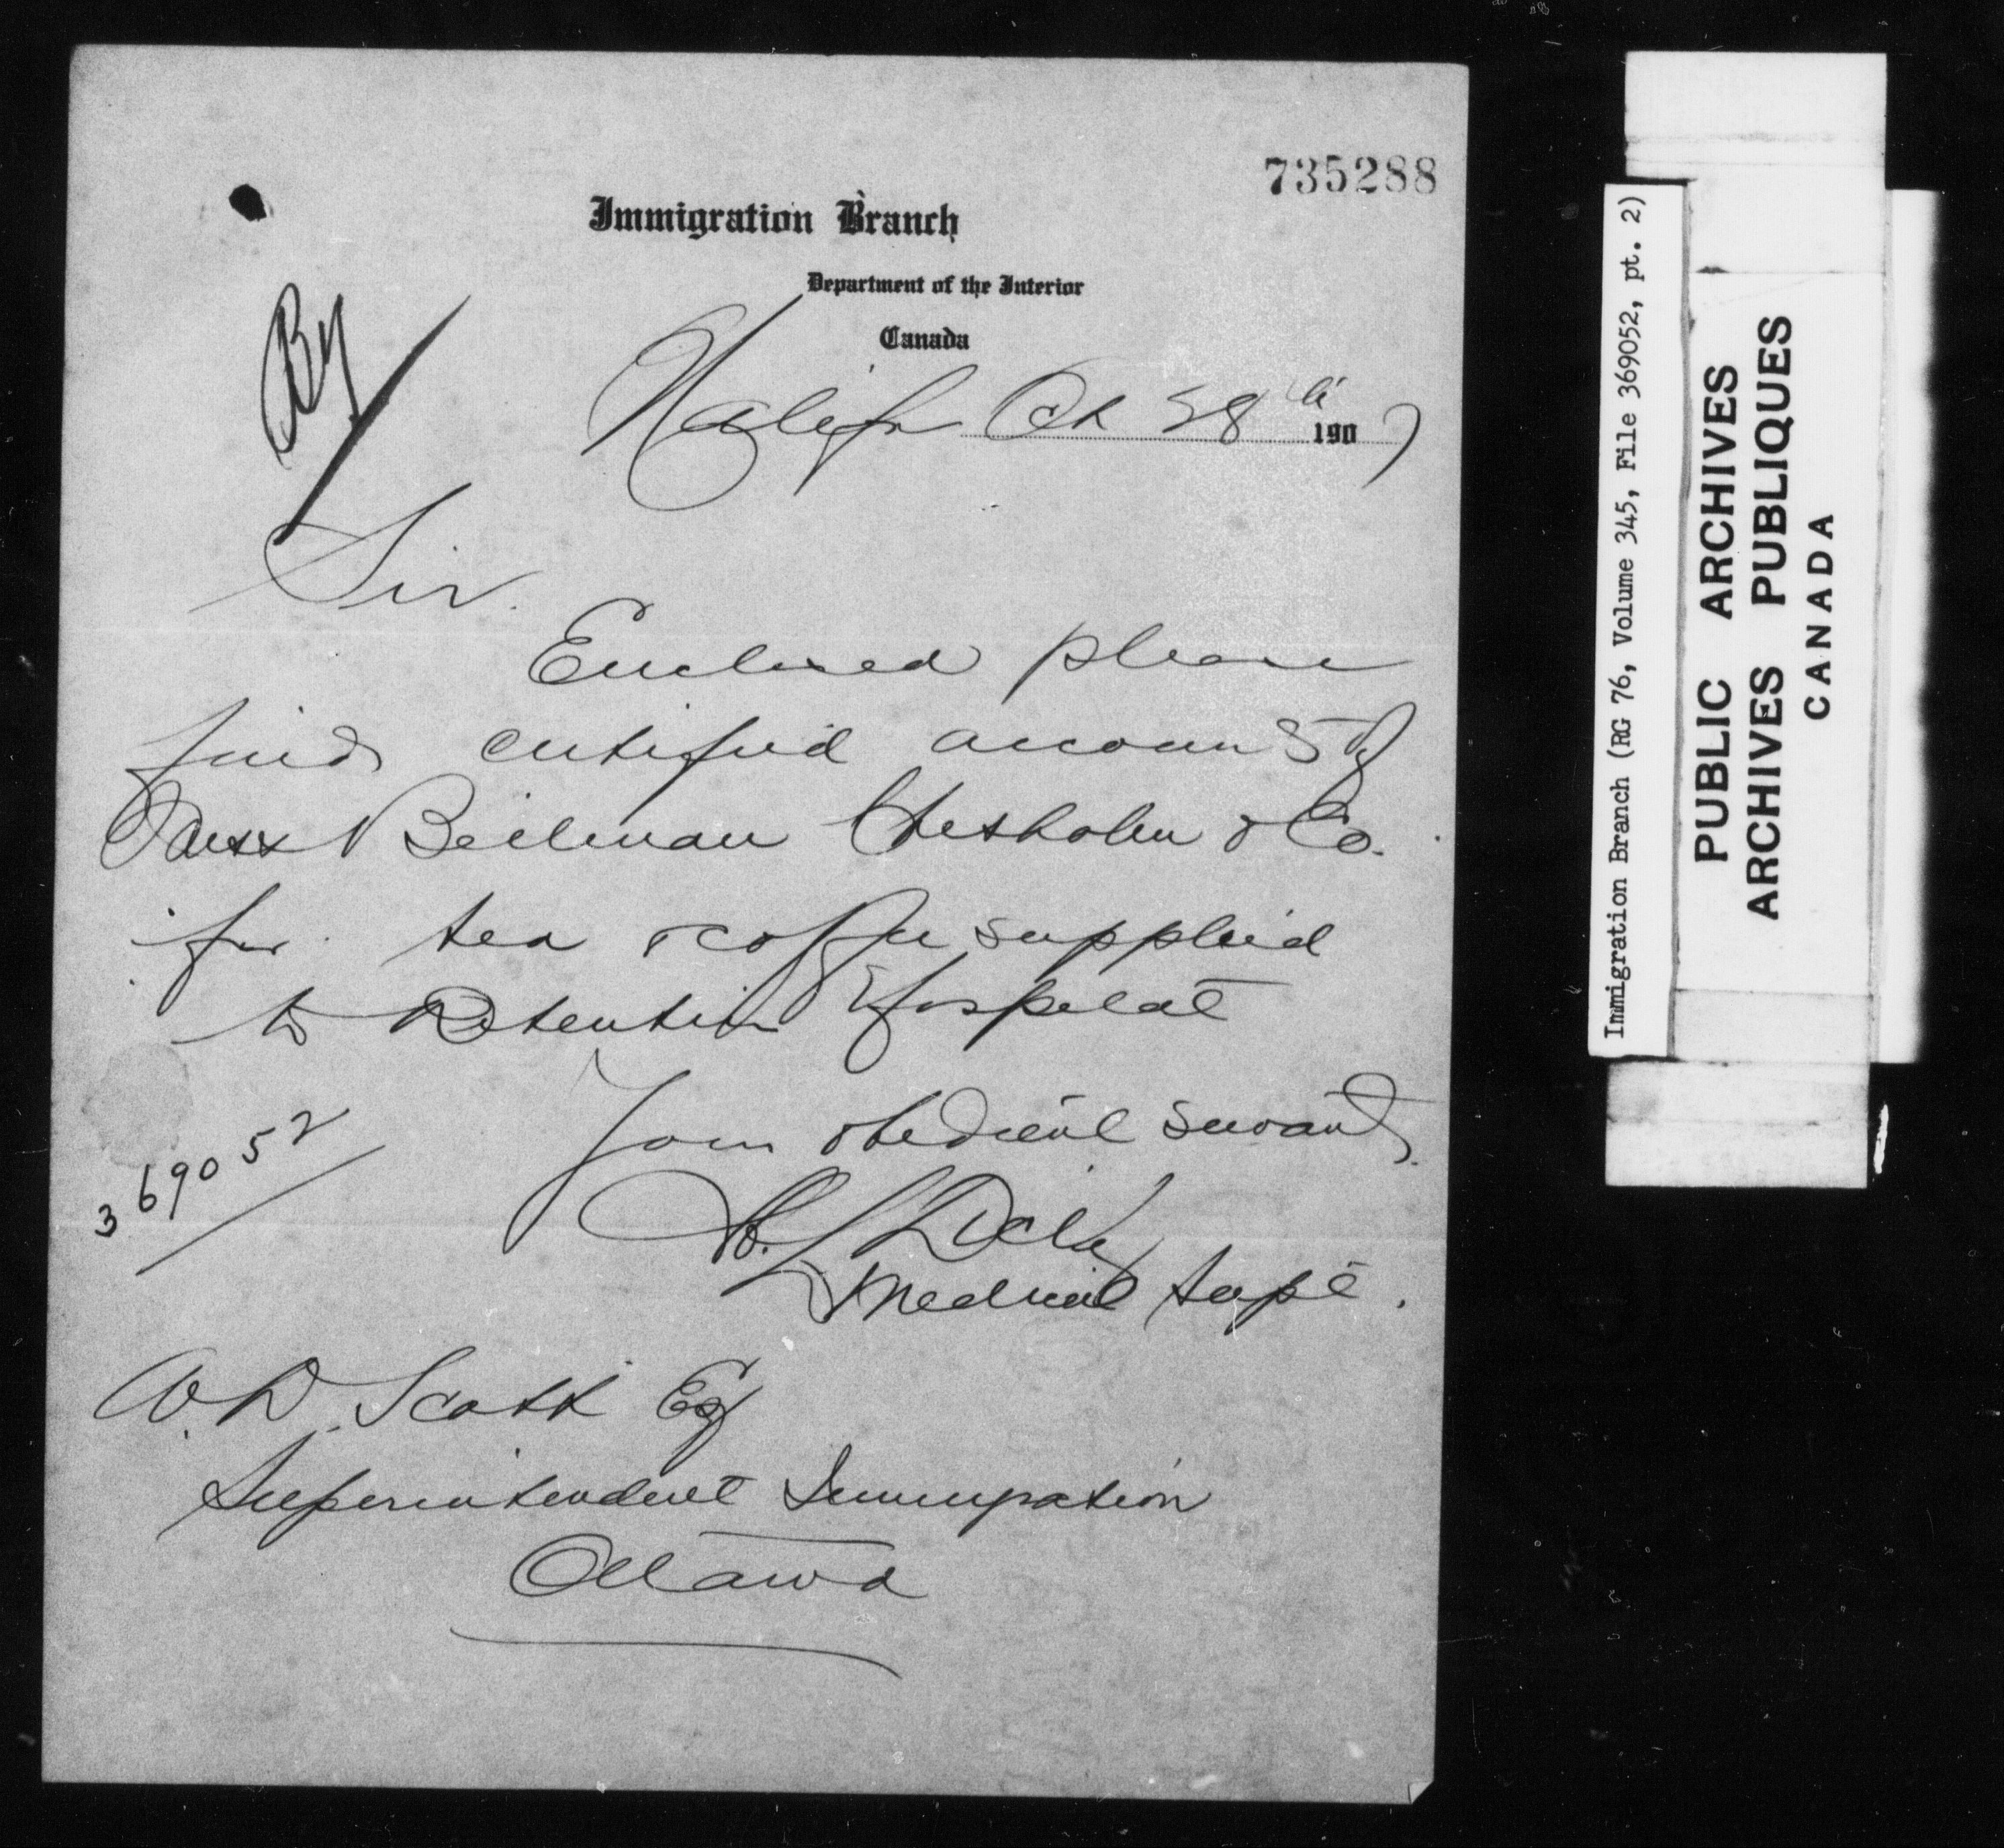 735288
Immigration Branch
Department of the Interior
Canada
Halifax Oct 28th 1907
Sir.
Enclosed please
find certified account of
Bauld Chisholm & Co.
for tea & coffee supplied
to Detention Hospital
Your obedient servant
369052
Medical Supt.
W. D. Scott Esq
Superintendent Immigration
Ottawa
Immigration Branch (RG 76, Volume 345, File 369052, pt. 2)
PUBLIC ARCHIVES
ARCHIVES PUBLIQUES
CANADA